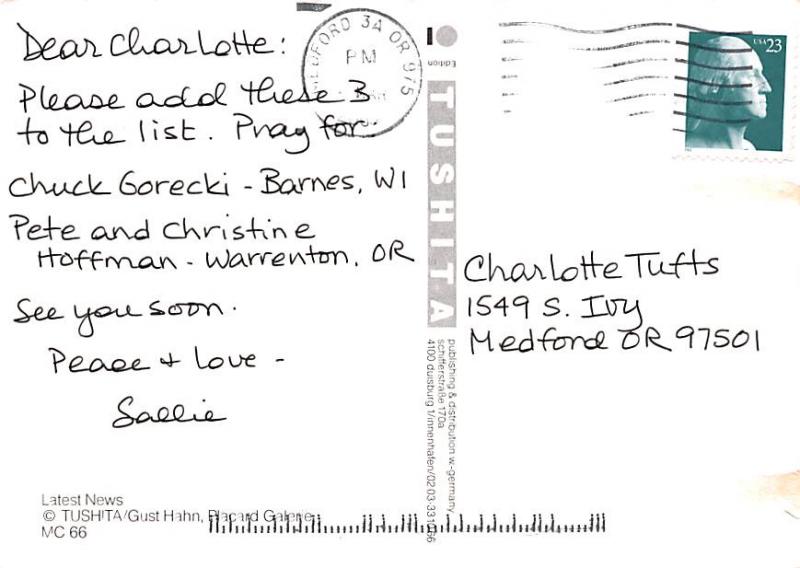 Dear Charlotte:
Please add these 3
to the list. Pray for:
Chuck Gorecki - Barnes, WI
Pete and Christine
Hoffman - Warrenton, OR
See you soon.
Peace + Love -
Sallie
Latest News
© TUSHITA/Gust Hahn, Placard Galerie
MC 66
MEDFORD 3A OR 975
PM
Edition
TUSHITA
publishing & distribution w-germany
schifferstraße 170a
4100 duisburg 1/innenhafen/02 03-331066
USA 23
Charlotte Tufts
1549 S. Ivy
Medford OR 97501